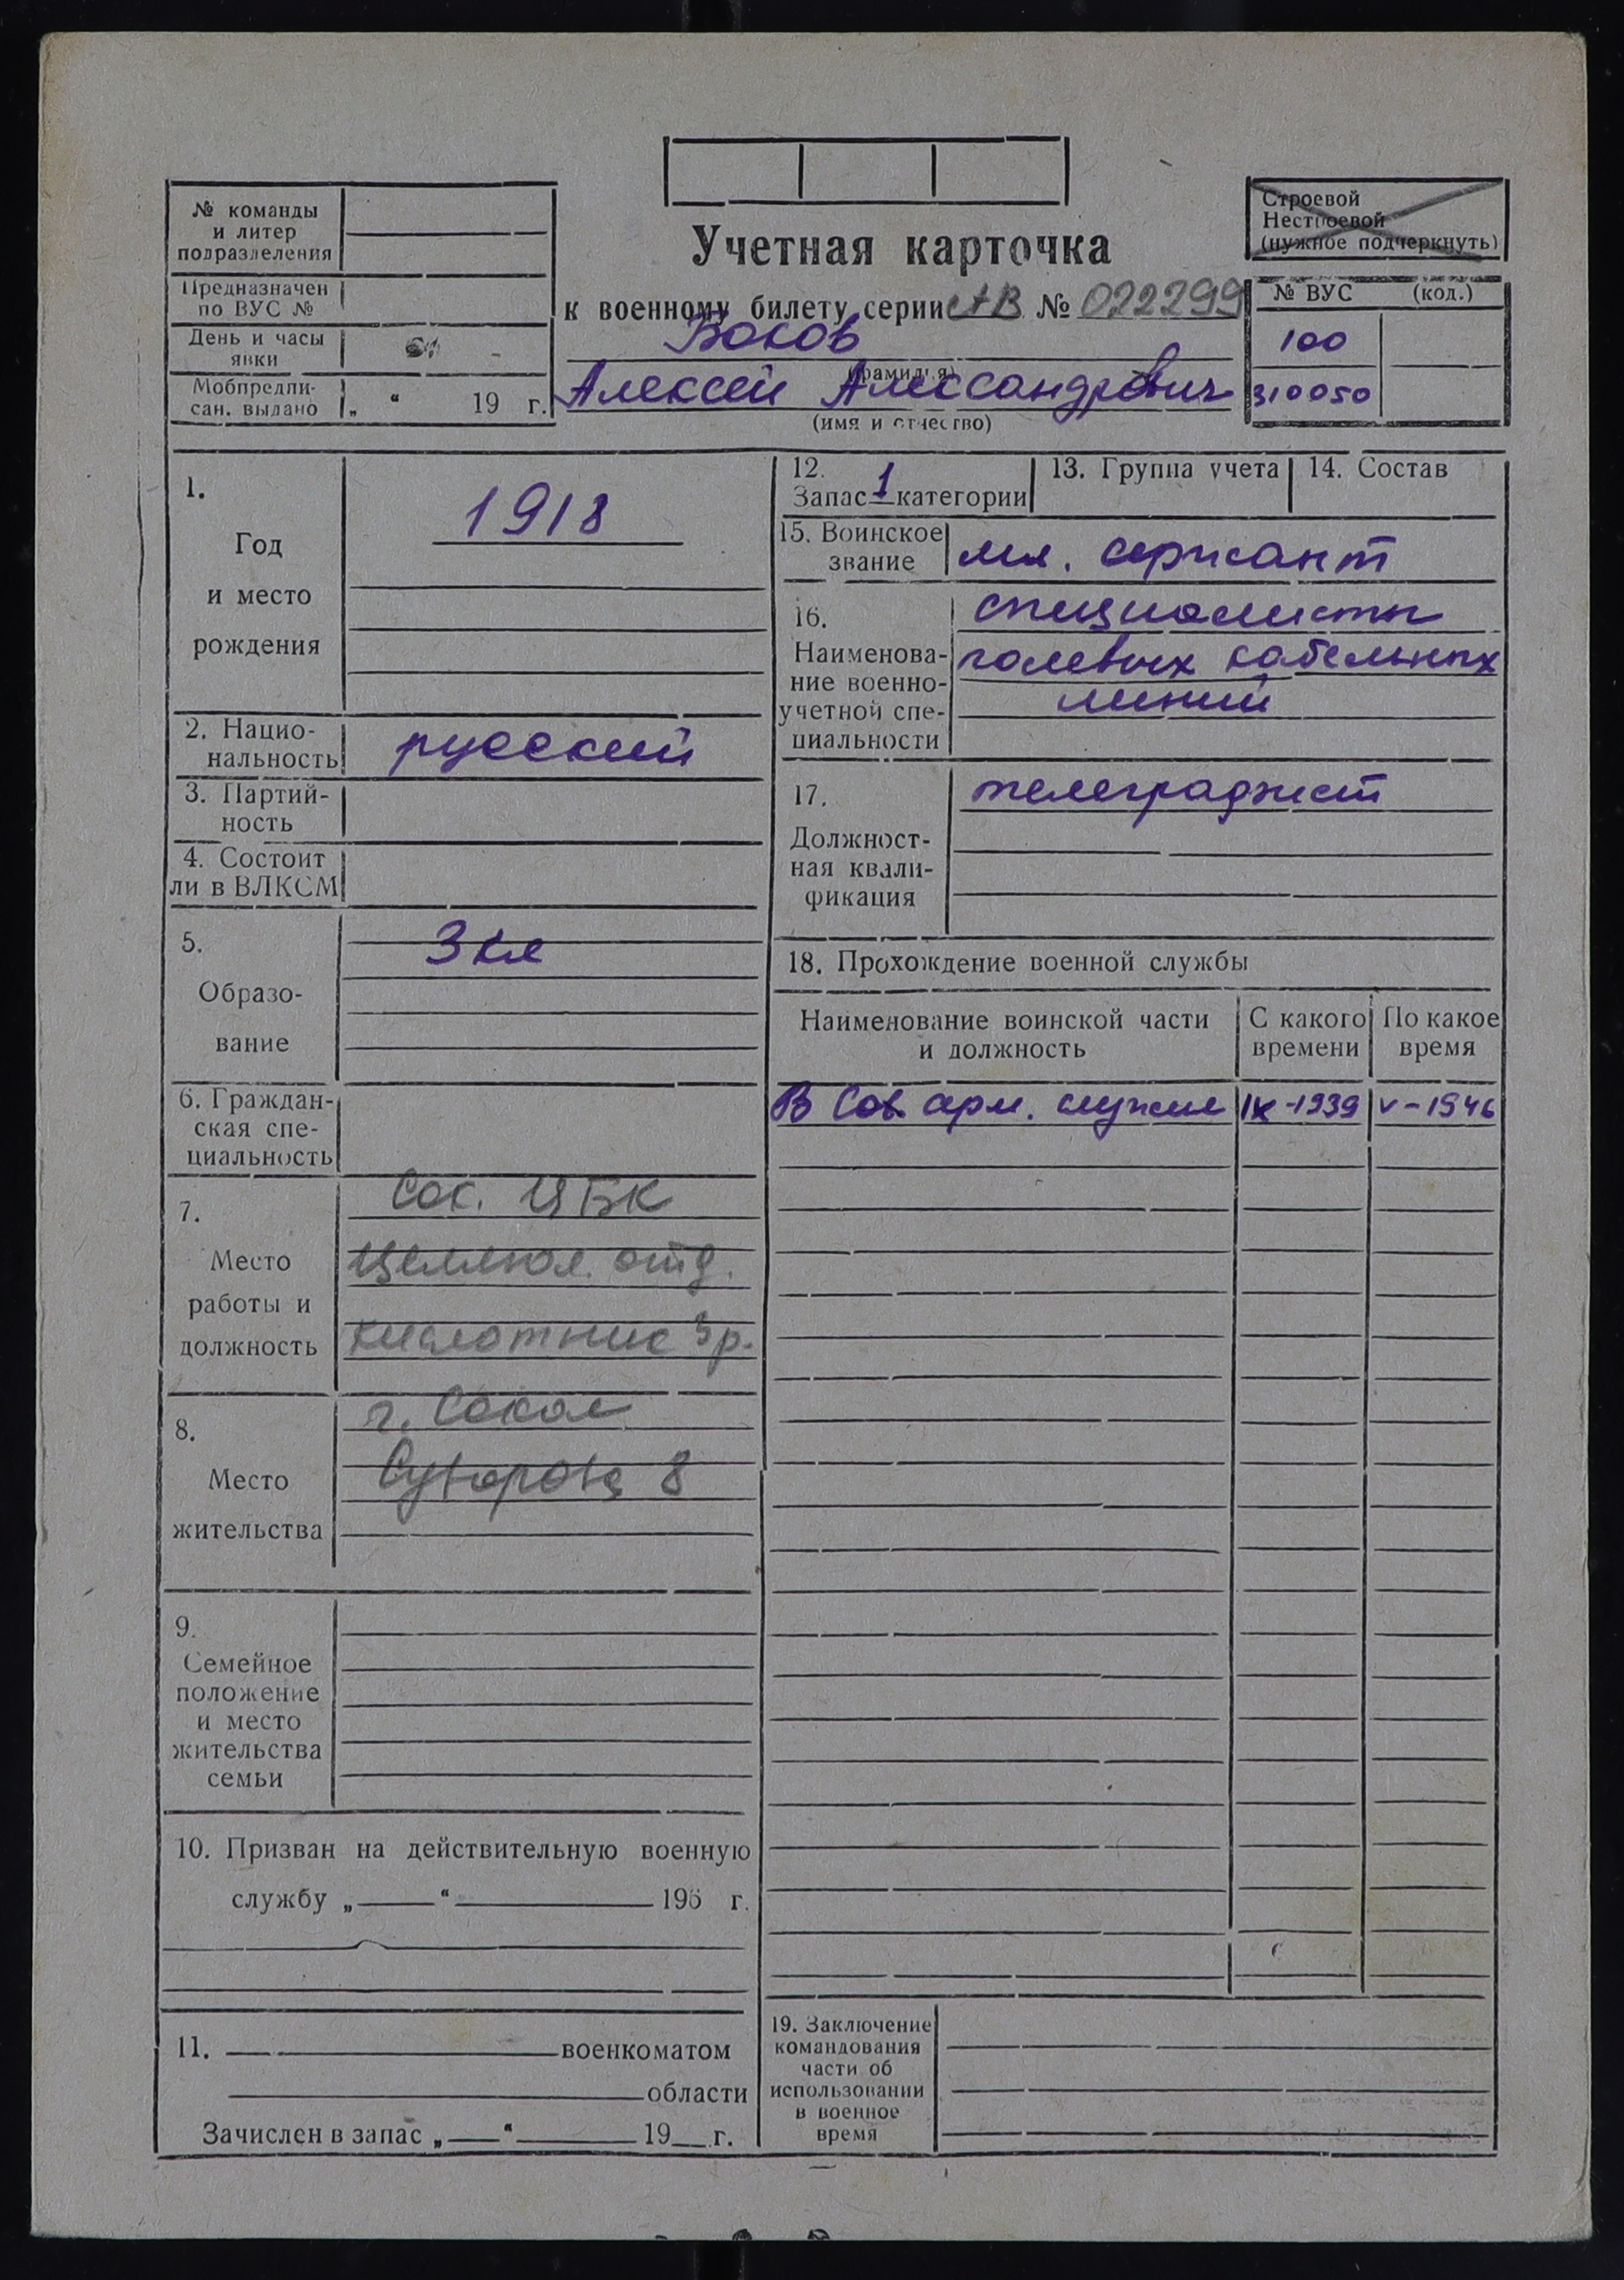 № команды
и литер
подразделения
Предназначен
по ВУС №
День и часы
явки
Мобпредпи-
сан. выдано „ “ 19 г.
Учетная карточка
к военному билету серии АВ № 022299
Боков
(фамилия)
Алексей Александрович
(имя и отчество)
Строевой
Нестроевой
(нужное подчеркнуть)
№ ВУС (код.)
100
310050
1.
Год
и место
рождения
1918
2. Нацио-
нальность русский
3. Партий-
ность
4. Состоит
ли в ВЛКСМ
5.
Образо-
вание
3 кл
6. Граждан-
ская спе-
циальность
7.
Место
работы и
должность
Сок. ЦБК
Целлюл. отд.
кислотник 3р.
8.
Место
жительства
г. Сокол
Суворова 8
9.
Семейное
положение
и место
жительства
семьи
10. Призван на действительную военную
службу „ “ 196 г.
11. военкоматом
области
Зачислен в запас „ “ 19 г.
12.
Запас 1 категории
13. Группа учета
14. Состав
15. Воинское
звание мл. сержант
16.
Наименова-
ние военно-
учетной спе-
циальности
специалисты
полевых кабельных
линий
17.
Должност-
ная квали-
фикация
телеграфист
18. Прохождение военной службы
Наименование воинской части
и должность
С какого
времени
По какое
время
В Сов. арм. служил IX-1939 V-1946
19. Заключение
командования
части об
использовании
в военное
время